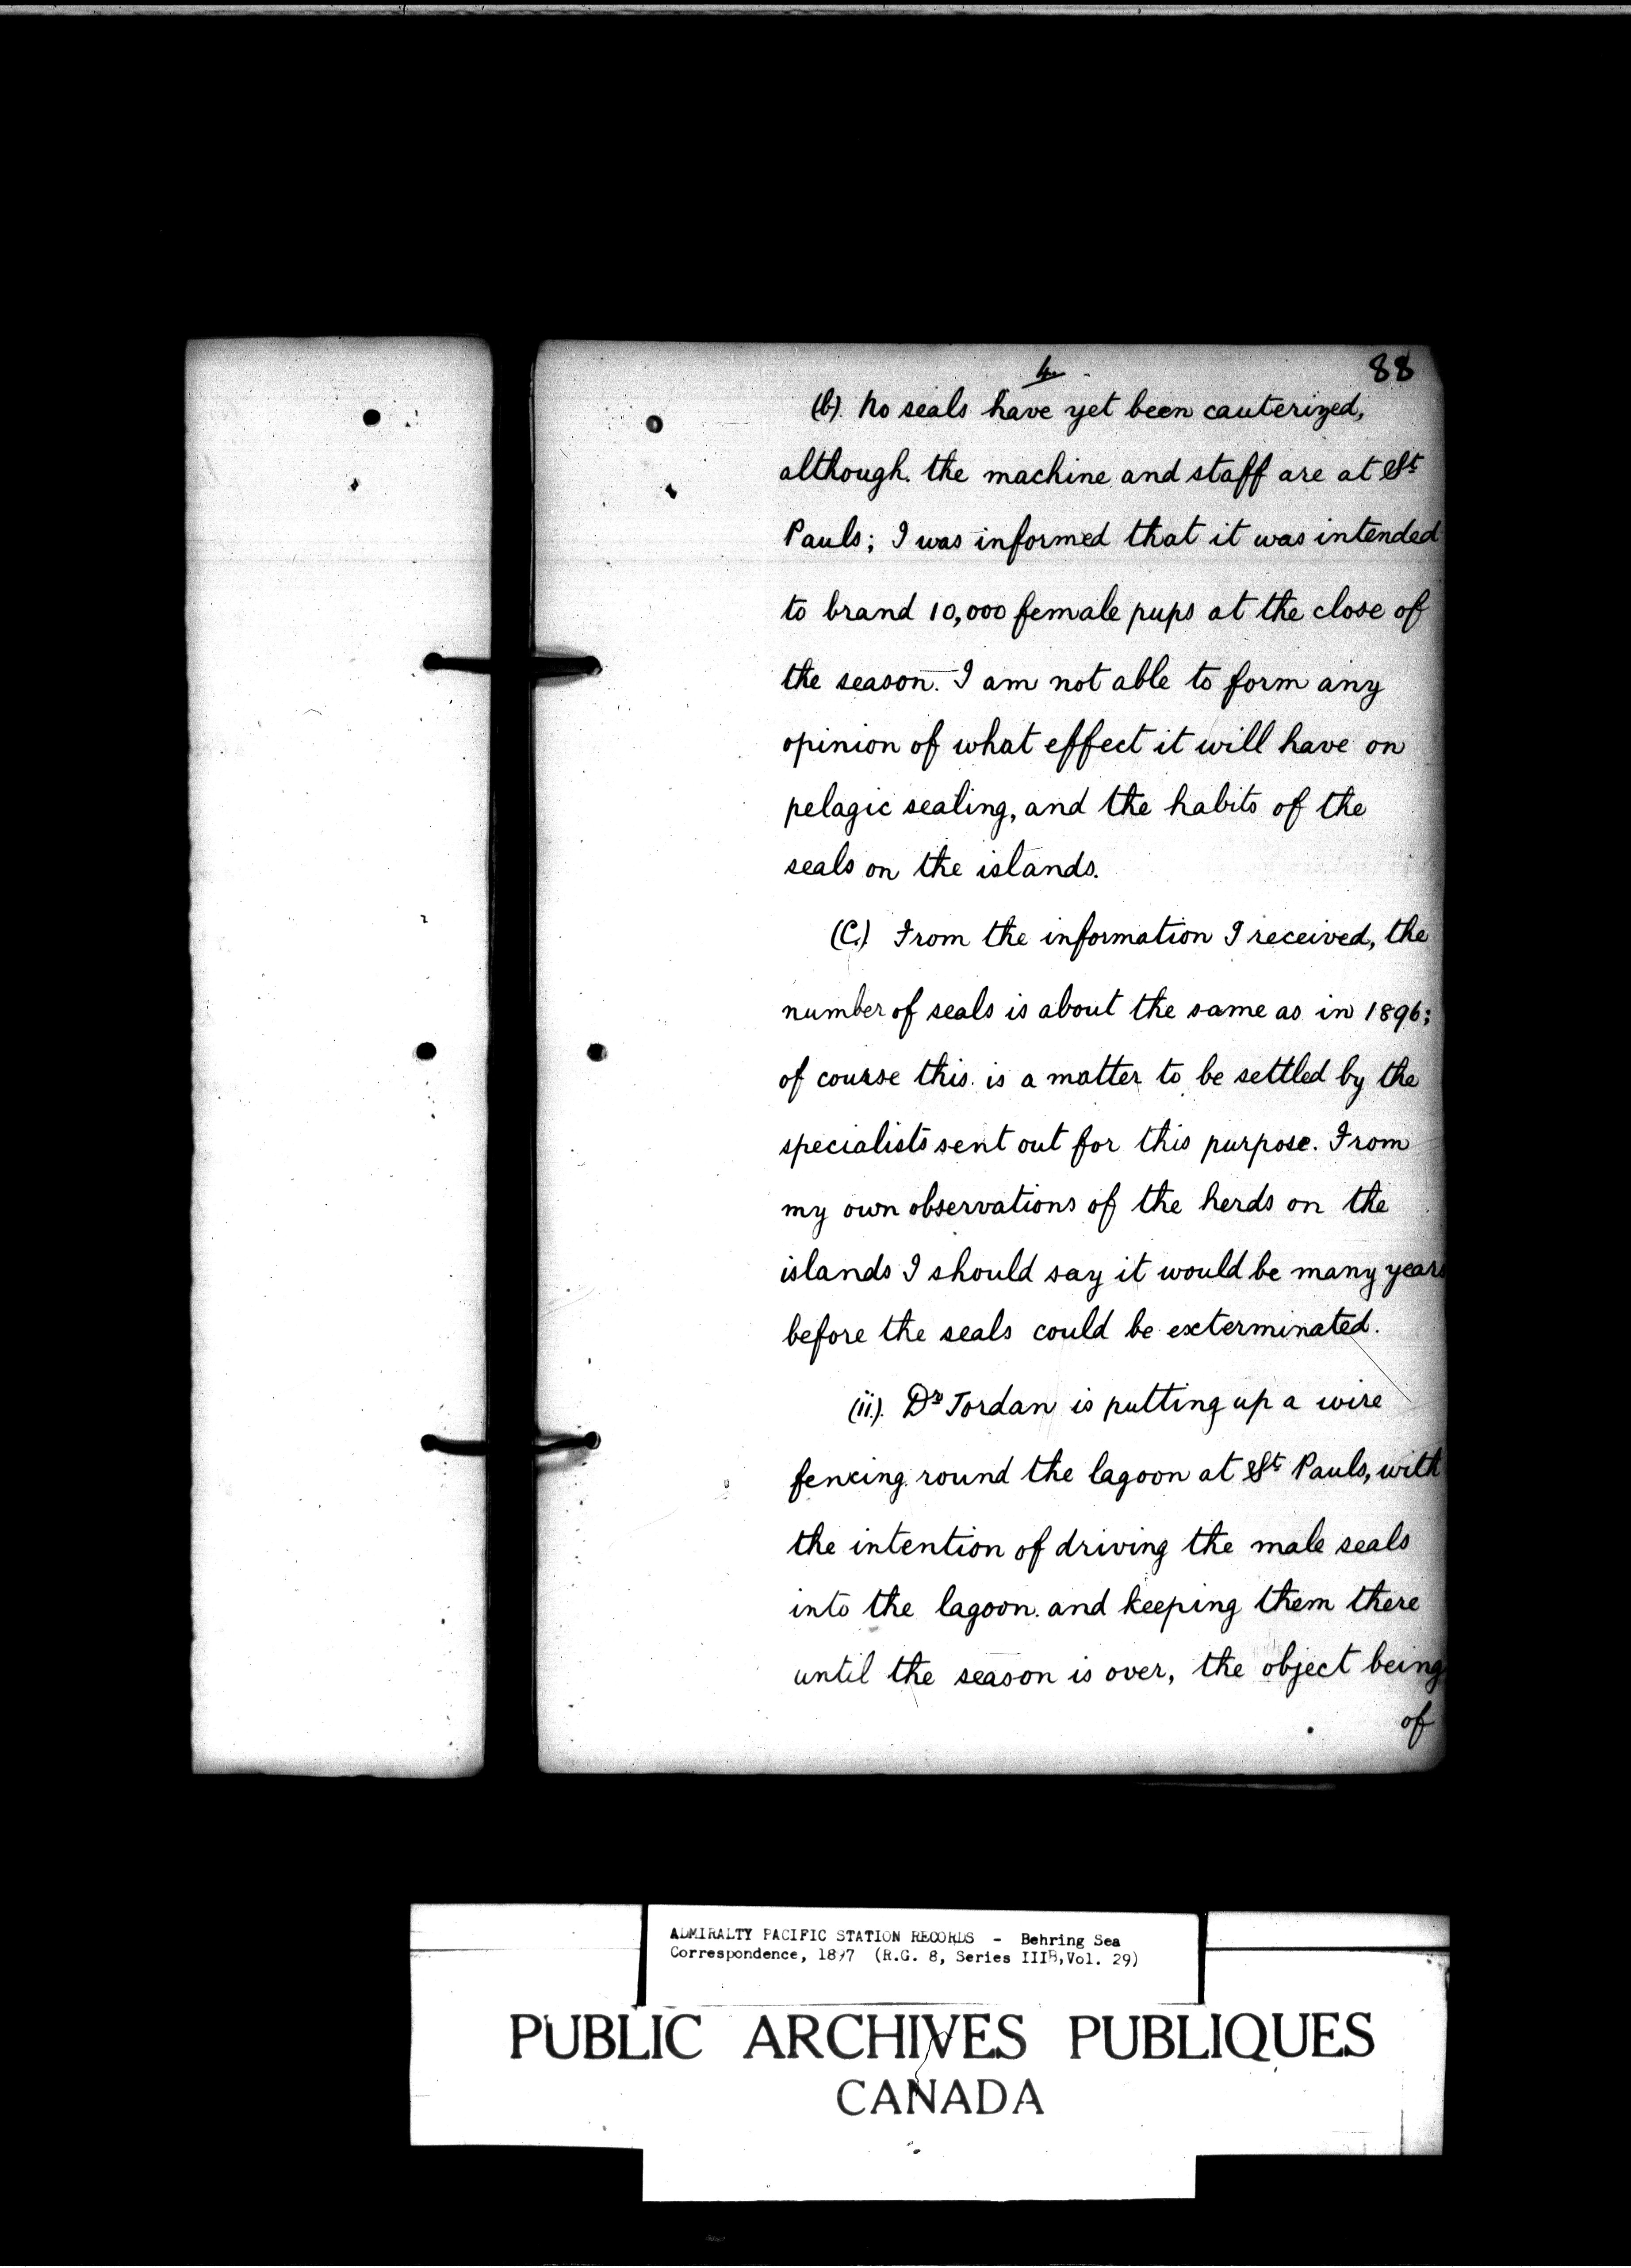 4.
88
(b). No seals have yet been cauterized,
although the machine and staff are at St
Pauls; I was informed that it was intended
to brand 10,000 female pups at the close of
the season. I am not able to form any
opinion of what effect it will have on
pelagic sealing, and the habits of the
seals on the islands.
(C.) From the information I received, the
number of seals is about the same as in 1896;
of course this is a matter to be settled by the
specialists sent out for this purpose. From
my own observations of the herds on the
islands I should say it would be many years
before the seals could be exterminated.
(ii). Dr Jordan is putting up a wire
fencing round the lagoon at St Pauls, with
the intention of driving the male seals
into the lagoon and keeping them there
until the season is over, the object being
of
ADMIRALTY PACIFIC STATION RECORDS - Behring Sea
Correspondence, 1897 (R.G. 8, Series IIIB, Vol. 29)
PUBLIC ARCHIVES PUBLIQUES
CANADA